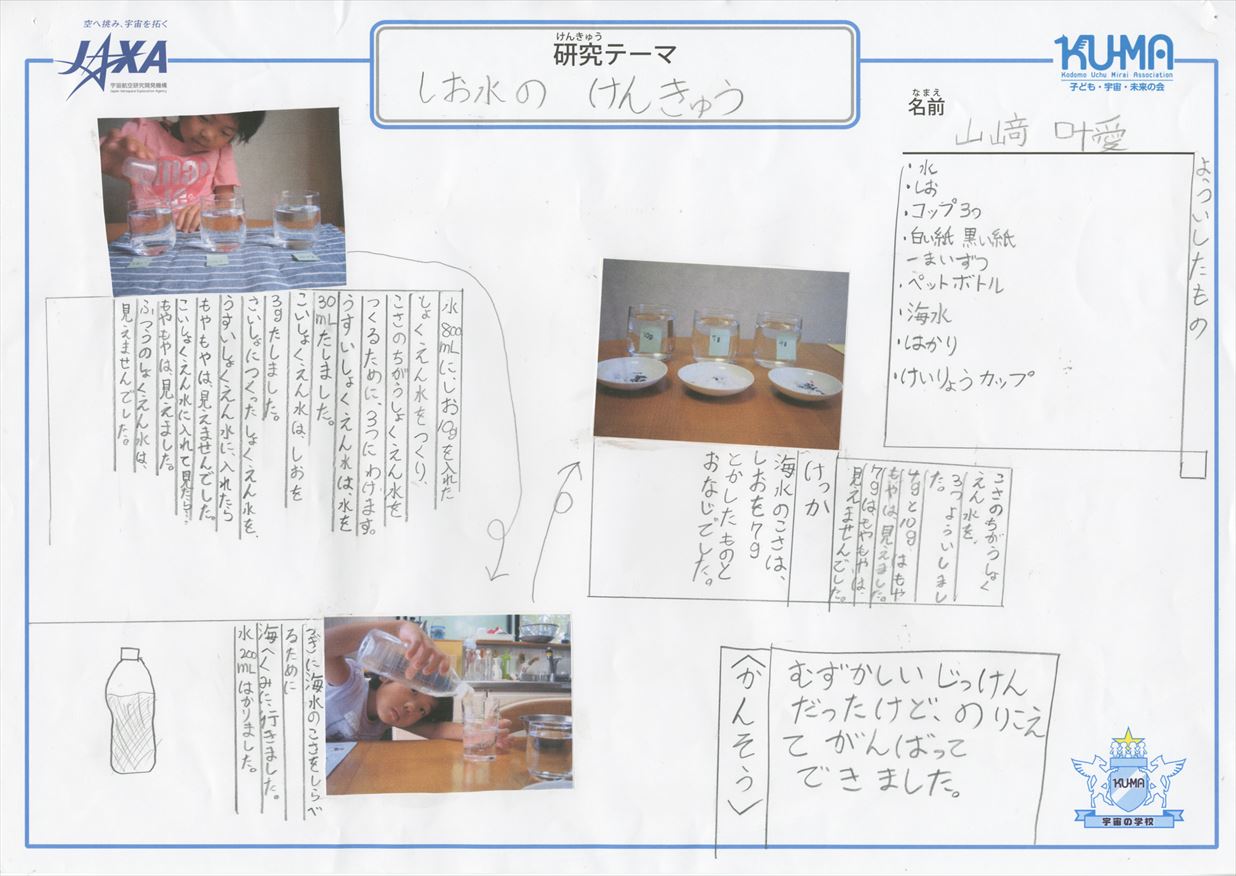 空へ挑み、宇宙を拓く
JAXA
宇宙航空研究開発機構
Japan Aerospace Exploration Agency
けんきゅう
研究テーマ
しお水の けんきゅう
KU-MA
Kodomo Uchu Mirai Association
子ども・宇宙・未来の会
なまえ
名前
山﨑 叶愛
よういしたもの
・水
・しお
・コップ3つ
・白い紙 黒い紙
一まいずつ
・ペットボトル
・海水
・はかり
・けいりょうカップ
水800mLにしお10gを入れた
しょくえん水をつくり、
こさのちがうしょくえん水を
つくるために、3つにわけます。
うすいしょくえん水は、水を
30mLたしました。
こいしょくえん水は、しおを
3gたしました。
さいしょにつくったしょくえん水を、
うすいしょくえん水に、入れたら
もやもやは、見えませんでした。
こいしょくえん水に入れて見たら…
もやもやは、見えました。
ふつうのしょくえん水は、
見えませんでした。
つぎに海水のこさをしらべ
るために
海へくみに行きました。
水200mLはかりました。
10g
7g
4g
こさのちがうしょく
えん水を、
3つよういしまし
た。
4gと10gはもや
もやは見えました。
7gはもやもやは、
見えませんでした。
けっか
海水のこさは、
しおを7g
とかしたものと
おなじでした。
〈かんそう〉
むずかしいじっけん
だったけど、のりこえ
てがんばって
できました。
KU-MA
宇宙の学校